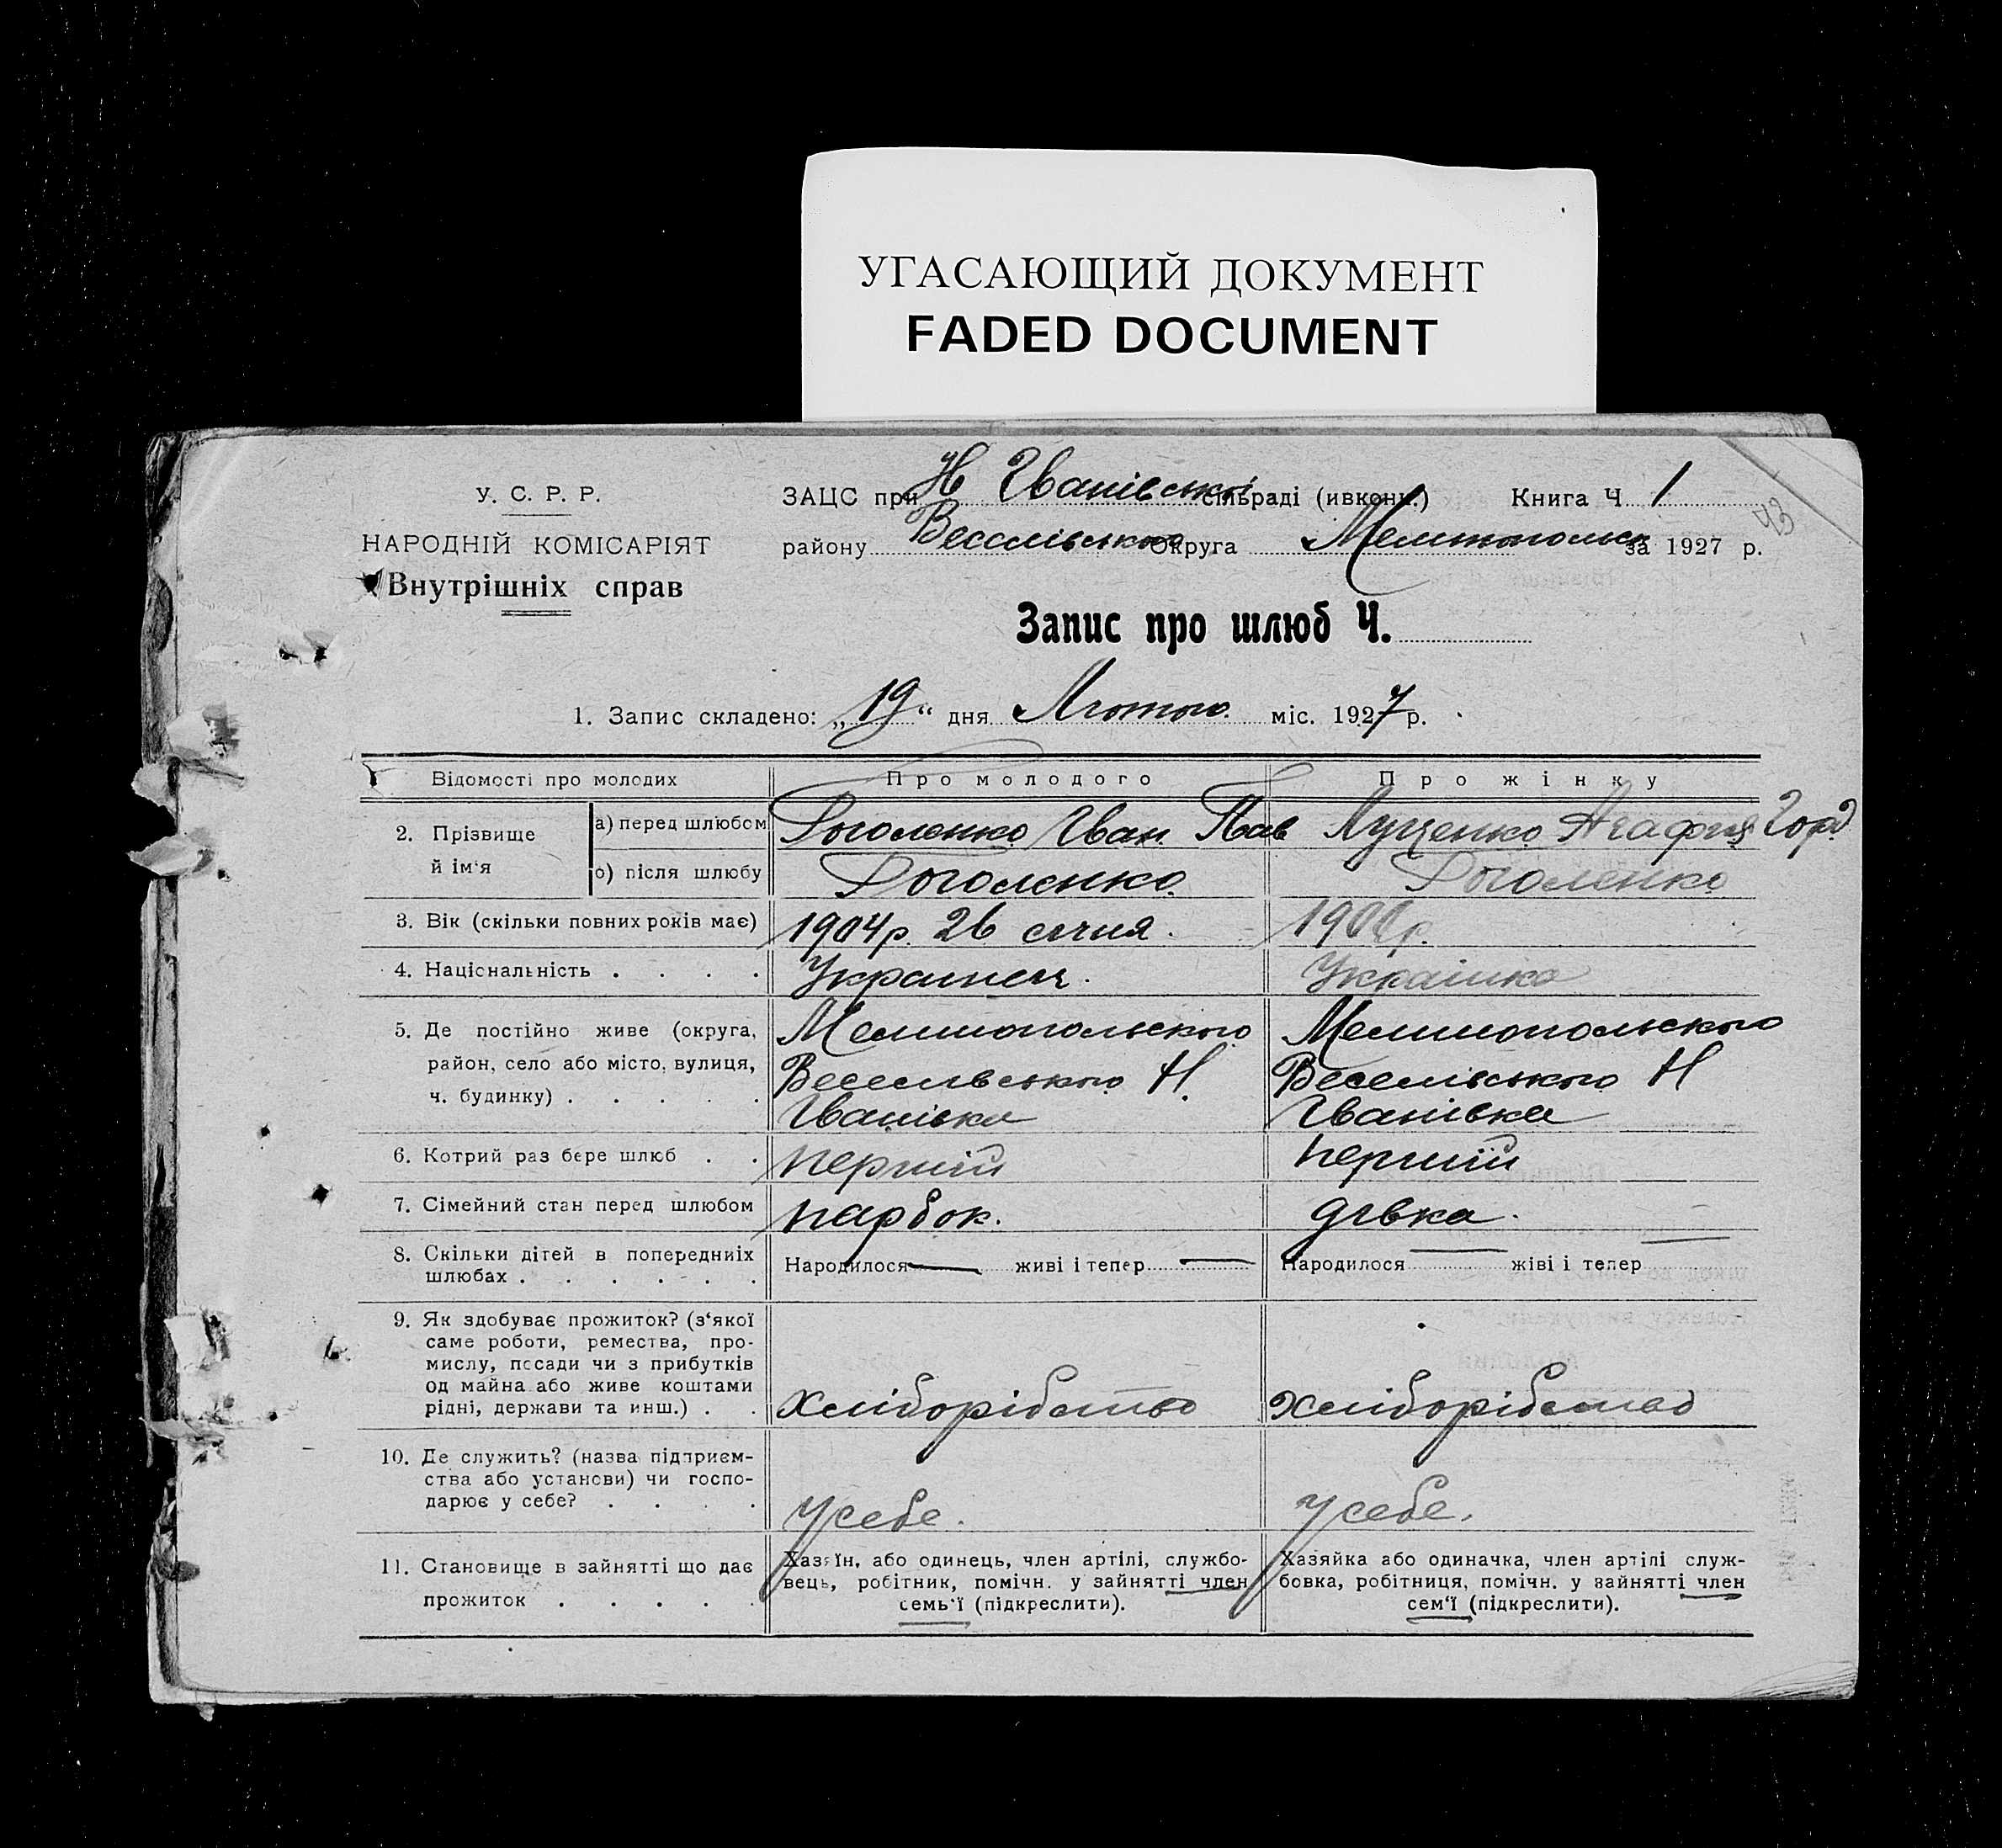 УГАСАЮЩИЙ ДОКУМЕНТ
FADED DOCUMENT
У. С. Р. Р.
НАРОДНІЙ КОМІСАРІЯТ
Внутрішніх справ
ЗАЦС при Н Іванівській сільраді (ивконк.) Книга Ч 1
району Веселівського Округа Мелітопольск за 1927 р.
43
Запис про шлюб Ч.
1. Запис складено: „19“ дня Лютого міс. 1927 р.
Відомості про молодих Про молодого Про жінку
2. Прізвище й ім'я
а) перед шлюбом Роголенко Іван Пав Луценко Агафия Горд
о) після шлюбу Роголенко Роголенко
3. Вік (скільки повних років має) 1904 р. 26 січня.
4. Націснальність . . . . Украинец. Украінка
5. Де постійно живе (округа, Мелитопольского Мелитопольского
район, село або місто, вулиця, Веселівського Н. Веселівського Н
ч. будинку) . . . . . Іванівка Іванівка
6. Котрий раз бере шлюб . . перший перший
7. Сімейний стан перед шлюбом парбок. дівка.
8. Скільки дітей в попередниіх Народилося — живі і тепер — Народилося — жіві і тепер —
шлюбах . . . . . .
9. Як здобуває прожиток? (з'якої
саме роботи, ремества, про-
мислу, посади чи з прибутків
од майна або живе коштами
рідні, держави та инш.) . . Хліборібство Хліборібство
10. Де служить? (назва підприєм-
ства або установи) чи госпо-
дарює у себе? . . . . У себе. У себе.
11. Становище в зайнятті що дає
прожиток . . . . .
Хазяїн, або одинець, член артілі, службо-
вець, робітник, помічн. у зайнятті член
семь'ї (підкреслити).
Хазяйка або одиначка, член артілі служ-
бовка, робітниця, помічн. у зайнятті член
сем'ї (підкреслити).